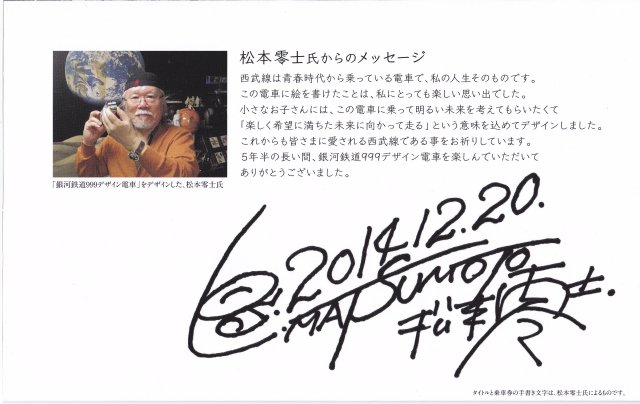 松本零士氏からのメッセージ
西武線は青春時代から乗っている電車で、私の人生そのものです。
この電車に絵を書けたことは、私にとっても楽しい思い出でした。
小さなお子さんには、この電車に乗って明るい未来を考えてもらいたくて
「楽しく希望に満ちた未来に向かって走る」という意味を込めてデザインしました。
これからも皆さまに愛される西武線である事をお祈りしています。
5年半の長い間、銀河鉄道999デザイン電車を楽しんでいただいて
ありがとうございました。
「銀河鉄道999デザイン電車」をデザインした、松本零士氏
2014.12.20.
MATSUMOTO
タイトルと乗車券の手書き文字は、松本零士氏によるものです。